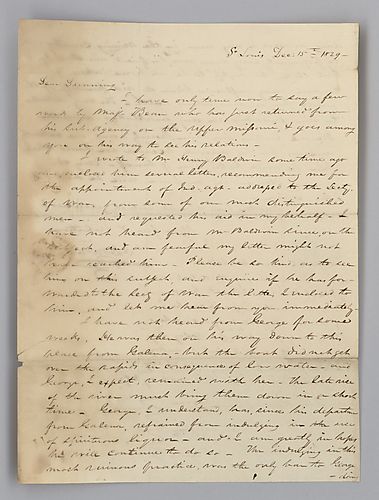 St Louis Dec. 15th 1829 -
Dear Dunning
I have only time now to say a few
words by Majr Bean who has just returned from
his Sub. Agency on the upper Missouri & goes among
you on his way to see his relations -
I wrote to Mr Henry Baldwin some time ago
enclosed him several letters, recommending me for
the appointment of Ind. agt - addressed to the Secty.
of War, from some of our most distinguished
men - and requested his aid in my behalf - I
have not heard from Mr Baldwin since, on the
subject, and am fearful my letter might not
have reached him - Please be so kind, as to see
him on this subject, and enquire if he has for-
warded to the Secy of War the letters I enclosed to
him, and let me hear from you immediately -
I have not heard from George for some
weeks, He was then on his way down to this
place from Galena, - but the boat did not get
over the rapids in consequence of low water - and
George, I expect, remained with her - the late rise
of the river must bring them down in a short
time - George, I understand, has, since his departure
from Galena, refrained from indulging in the use
of spirituous liquor - and I am greatly in hopes
he will continue to do so - The indulging in this
most ruinous practice, was the only bar to George